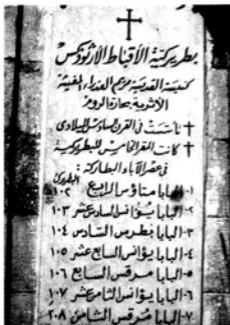 بطريركية الأقباط الأرثوذكس
كنيسة القديسة مريم العذراء المغيثة
الأثرية بحارة الروم
تأسست فى القرن السادس الميلادى
كانت المقر الخامس للبطريركية
فى عصر الآباء البطاركة:
١- البابا متاؤس الرابع ١٠٢
٢- البابا يؤانس السادس عشر ١٠٣
٣- البابا بطرس السادس ١٠٤
٤- البابا يؤانس السابع عشر ١٠٥
٥- البابا مرقس السابع ١٠٦
٦- البابا يوانس الثامن عشر ١٠٧
٧- البابا مرقس الثامن ١٠٨